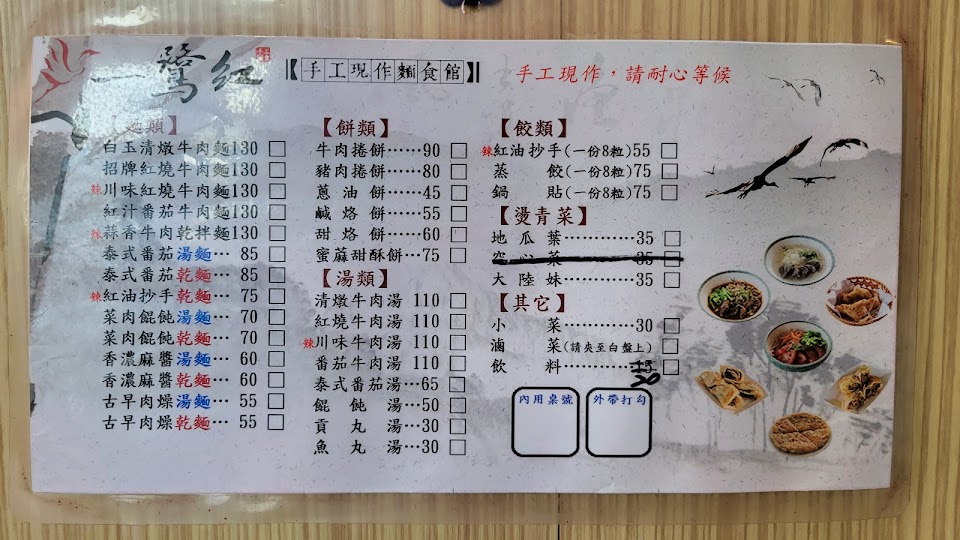 鷺紅
手工現作麵食館
手工現作，請耐心等候
【麵類】
白玉清燉牛肉麵130
招牌紅燒牛肉麵130
辣川味紅燒牛肉麵130
紅汁番茄牛肉麵130
辣蒜香牛肉乾拌麵130
泰式番茄湯麵… 85
泰式番茄乾麵… 85
辣紅油抄手乾麵… 75
菜肉餛飩湯麵… 70
菜肉餛飩乾麵… 70
香濃麻醬湯麵… 60
香濃麻醬乾麵… 60
古早肉燥湯麵… 55
古早肉燥乾麵… 55
【餅類】
牛肉捲餅……90
豬肉捲餅……80
蔥油餅……45
鹹烙餅……55
甜烙餅……60
蜜蔴甜酥餅…75
【湯類】
清燉牛肉湯 110
紅燒牛肉湯 110
辣川味牛肉湯 110
番茄牛肉湯 110
泰式番茄湯…65
餛飩湯…50
貢丸湯…30
魚丸湯…30
【餃類】
辣紅油抄手(一份8粒)55
蒸餃(一份8粒)75
鍋貼(一份8粒)75
【燙青菜】
地瓜葉…………35
空心菜…………35
大陸妹…………35
【其它】
小菜…………30
滷菜(請夾至白盤上)
飲料…………15
20
內用桌號
外帶打勾